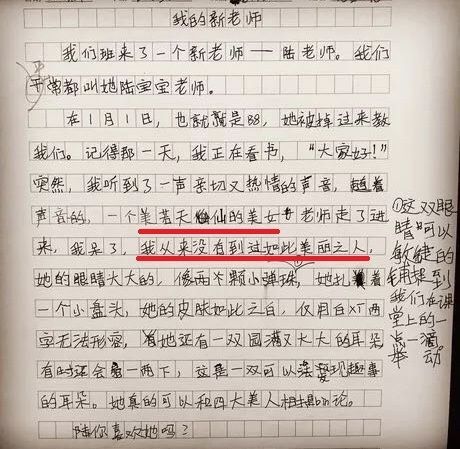 我的新老师
我们班来了一个新老师——陆老师。我们
平常都叫她陆宝宝老师。
在1月1日，也就是BB，她被掉过来教
我们。记得那一天，我正在看书，“大家好！”
突然，我听到了一声亲切又热情的声音，趁着
声音的，一个美若天仙的美女老师走了进
来，我呆了，我从来没有到过如此美丽之人，
她的眼睛大大的，像两个颗小弹珠，她扎着
一个小盘头，她的皮肤如此之白，仅用白不两
字无法形容，有她还有一双圆满又大大的耳朵
有时还会一两下，这是一双可以发现趣事
的耳朵。她真的可以和四大美人相提bin论。
陆你喜欢她吗？
①这双眼
睛可以
敏捷的
捕捉到
我们在课
堂上的一
点一滴
举动